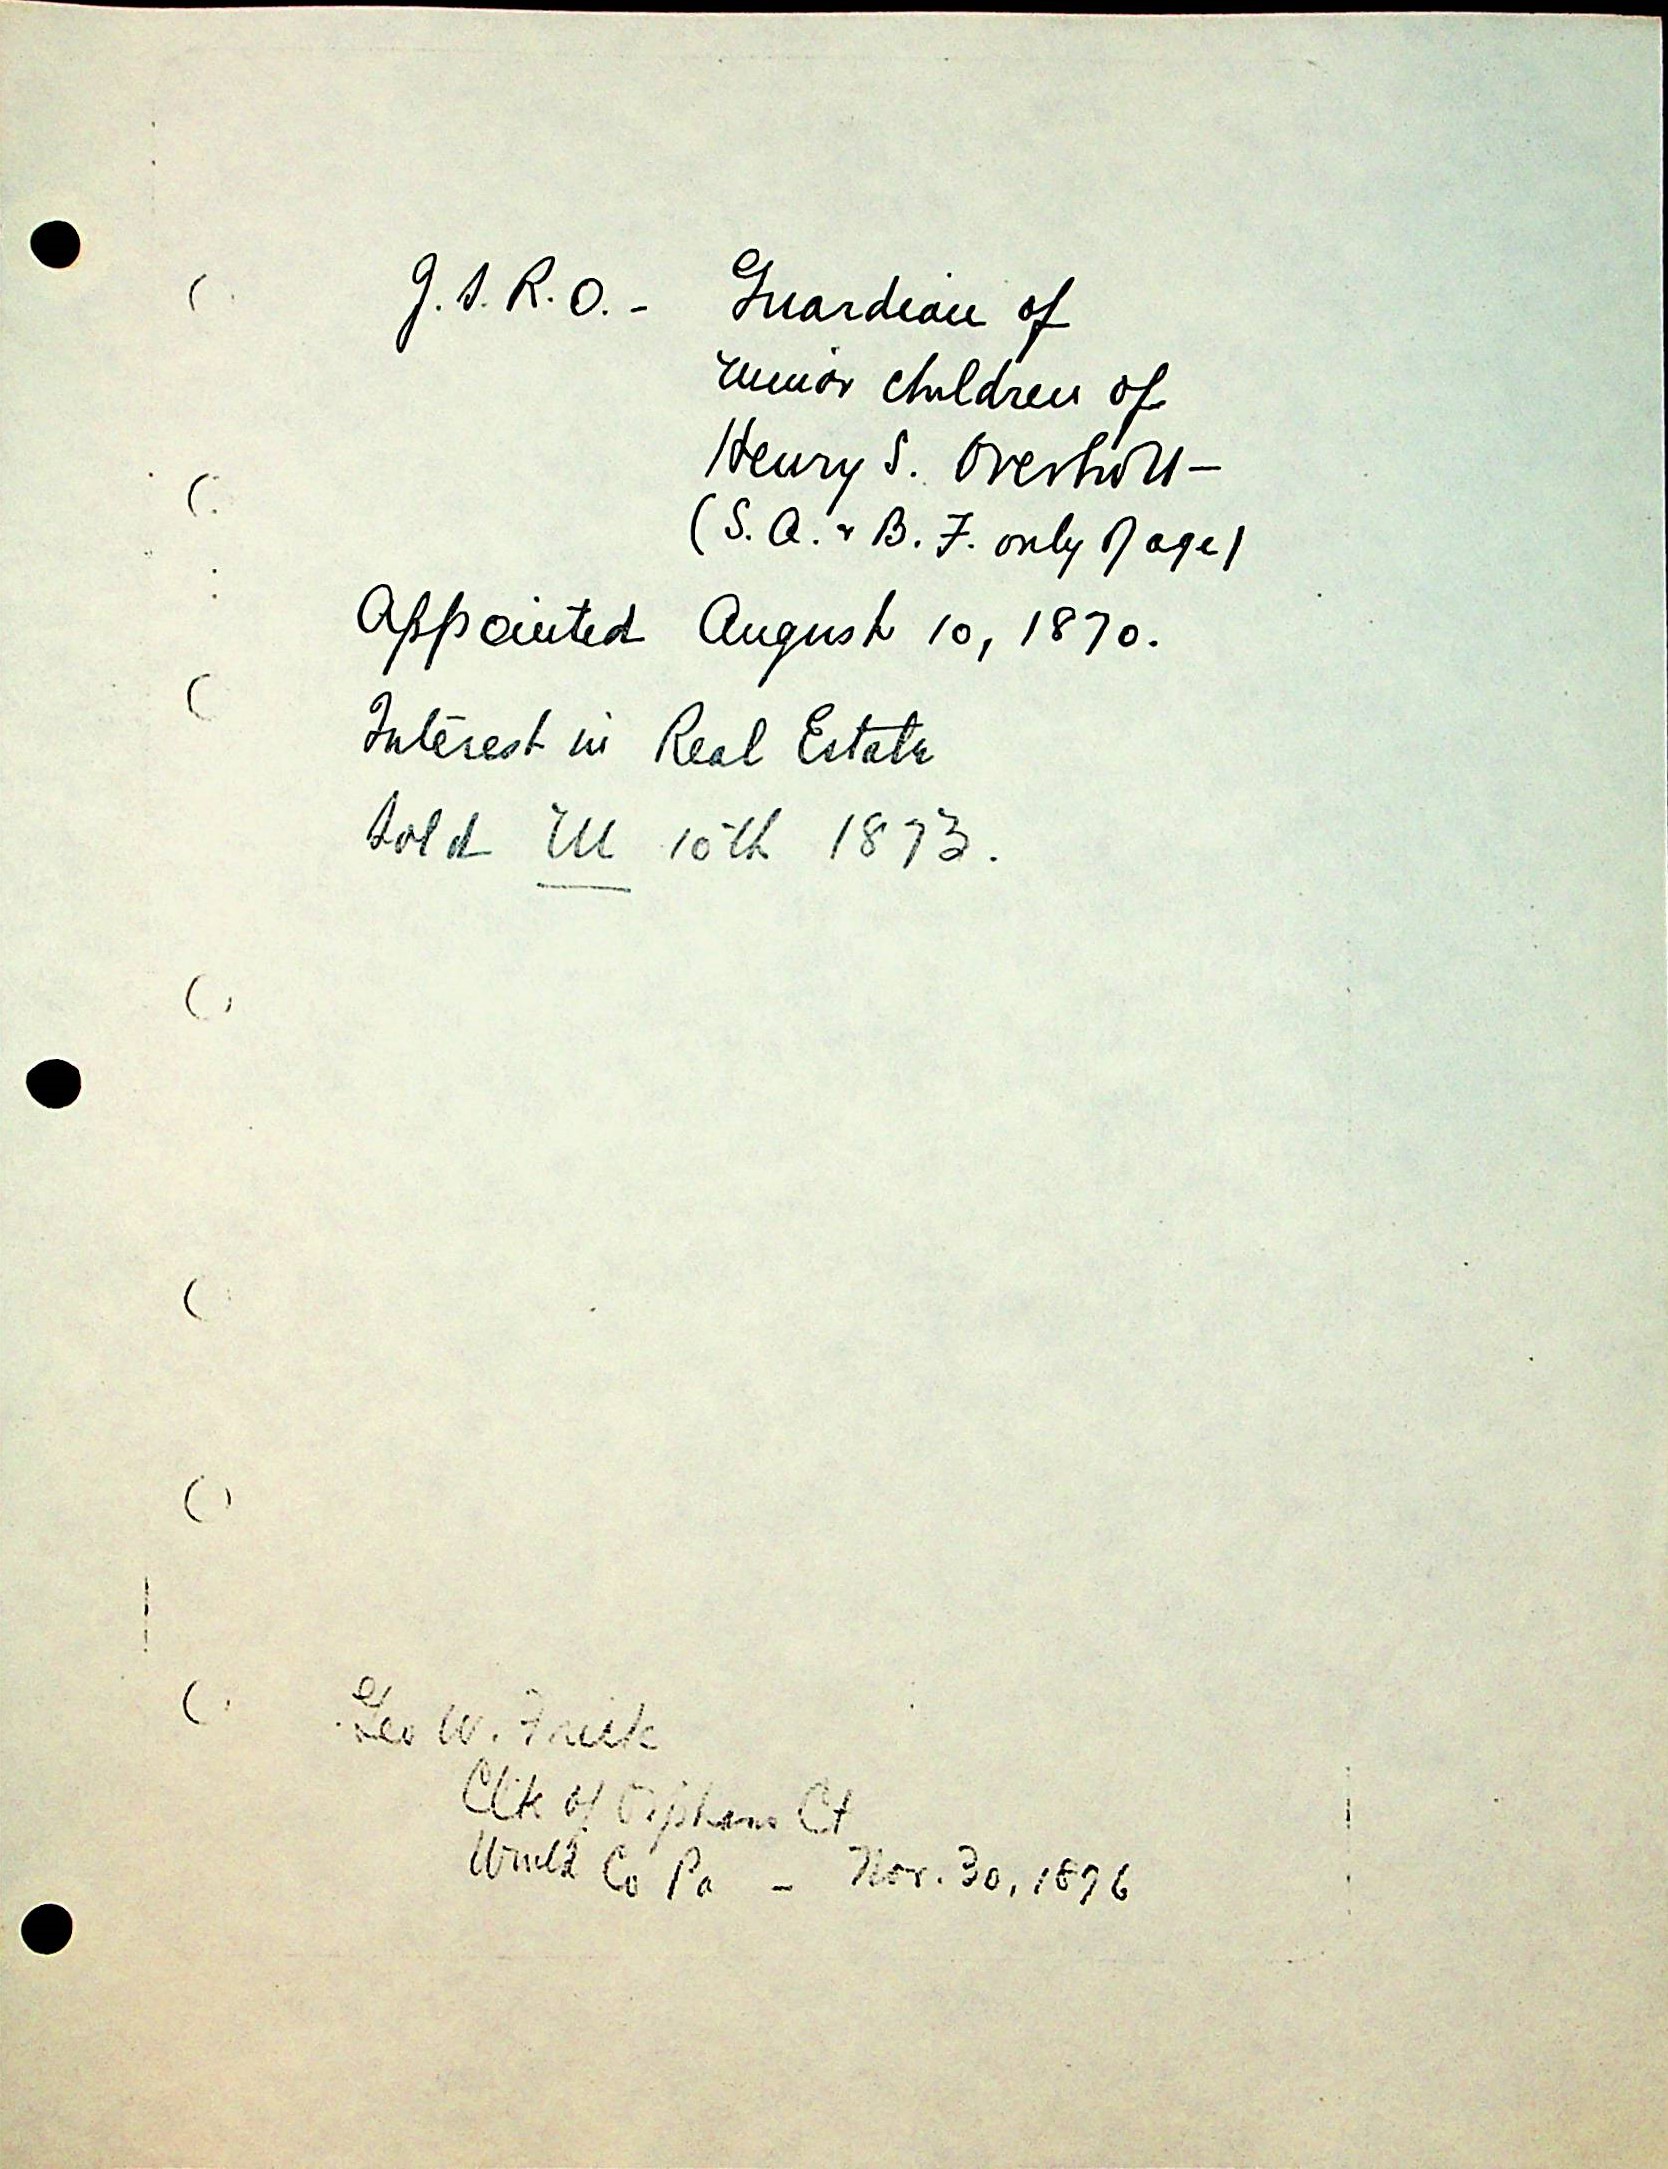 J.S.R.O. - Guardian of
minor children of
Henry S. Overholt -
(S.A. & B.F. only of age)
Appointed August 10, 1870.
Interest in Real Estate
Sold 10th 1873.
Geo W. Frick
Clk of Orphans Ct
Wmld Co Pa - Nov. 30, 1876